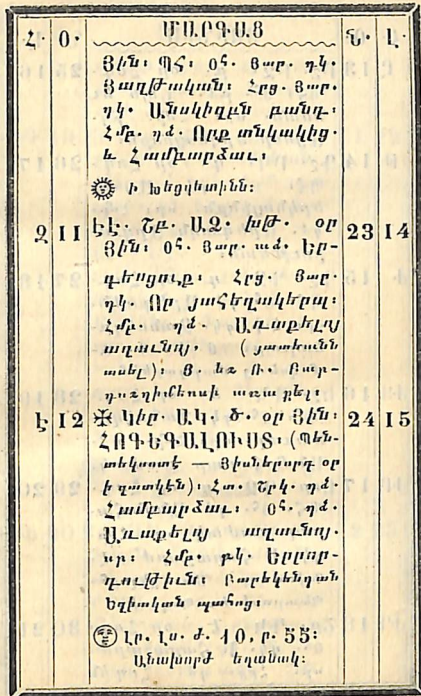 Հ․ Օ․ ՄԱՐԳԱՑ Ն․ Լ․
Յին։ ՊՀ։ օհ․ Յար․ դկ․
Յաղթական։ Հրց․ Յար․
դկ․ Անսկիզբն բանդ։
Հմբ․ դձ․ Որք տնկակից․
և Համբարձաւ։
Ի խեցգետինն։
Զ 11 Էէ․ Շբ․ ԱԶ․ խԹ․ օր 23 14
Յին։ Օհ․ Յար․ աձ․ Եր-
գեսցուք։ Հրց․ Յար․
դկ․ Որ յահեղակերպ։
Հմբ․ դձ․ Առաքելոյ
աղաւնոյ․ (յատեանն
ասել)։ Յ եռ Ո․ Բար-
դողիմեոսի առաքել։
Է 12 ✠ Կիր․ ԱԿ․ Ծ․ օր Յին։ 24 15
ՀՈԳԵԳԱԼՈՒՍՏ։ (Պեն-
տեկոստէ — Յիսներորդ օր
ի զատկէն)։ Հտ․ Շրկ․ դձ․
Համբարձաւ։ Օհ․ դձ․
Առաքելոյ աղաւնոյ․
սր։ Հմբ․ բկ․ Երրոր-
դութիւն։ Բարեկենդան
Եղիական պահոց։
Լր․ Լս․ Ժ․ 10, ր․ 55։
Անախորժ եղանակ։